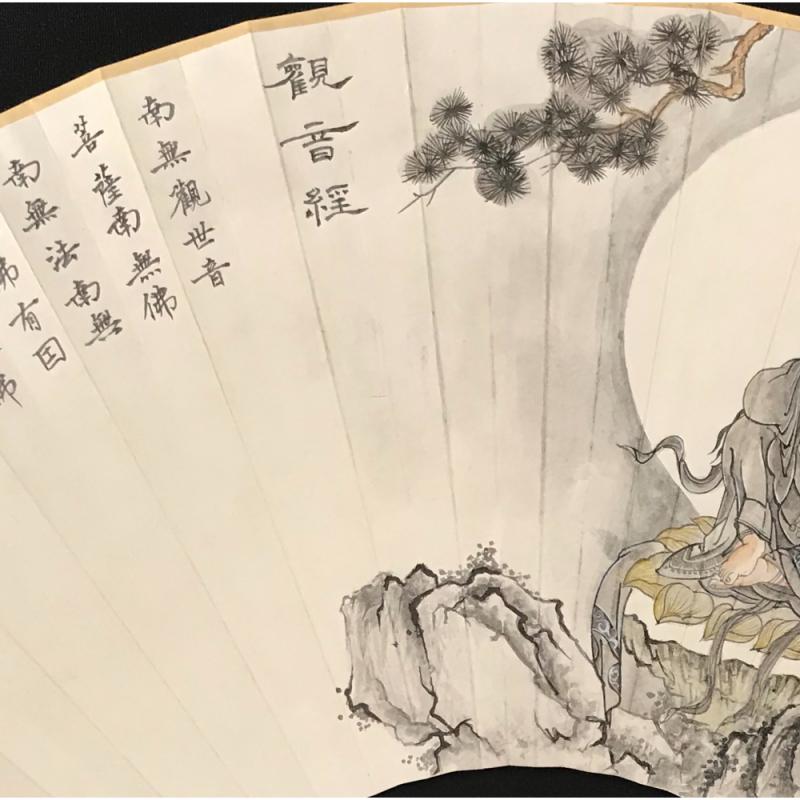 觀音經
南無觀世音
菩薩南無佛
南無法南無
佛有因